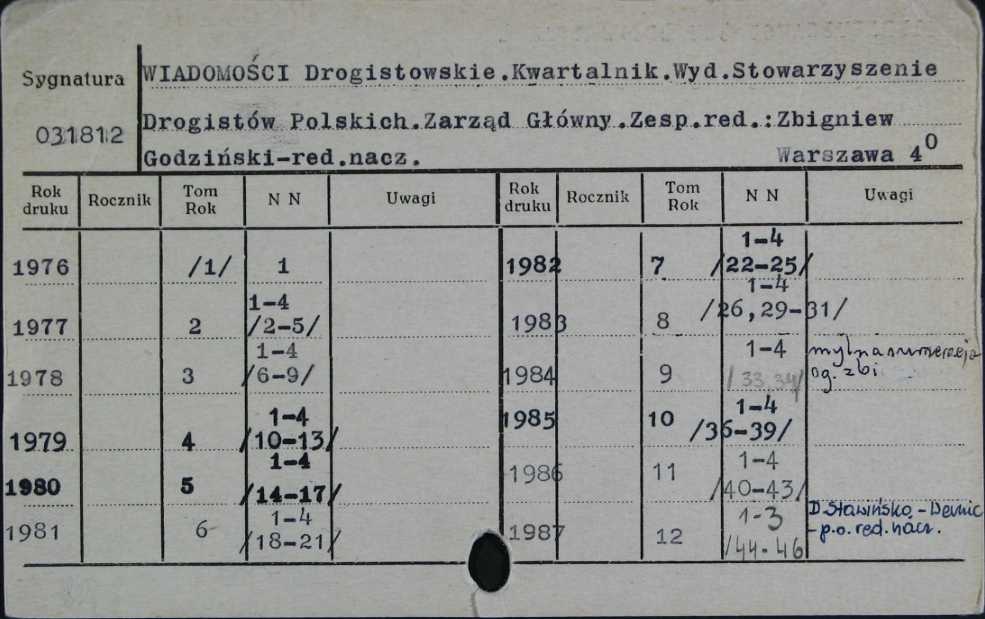 Sygnatura
031812
WIADOMOŚCI Drogistowskie.Kwartalnik.Wyd.Stowarzyszenie
Drogistów Polskich.Zarząd Główny.Zesp.red.:Zbigniew
Godziński-red.nacz. Warszawa 4⁰
Rok druku Rocznik Tom Rok N N Uwagi Rok druku Rocznik Tom Rok N N Uwagi
1976 /1/ 1
1977 2 1-4 /2-5/
1978 3 1-4 /6-9/
1979 4 1-4 /10-13/
1980 5 1-4 /14-17/
1981 6 1-4 /18-21/
1982 7 1-4 /22-25/
1983 8 1-4 /26,29-31/
1984 9 1-4 /33 34/ mylna numeracja og. zbi
1985 10 1-4 /36-39/
1986 11 1-4 /40-43/
1987 12 1-3 /44-46 D. -
- p.o. red. nacz.